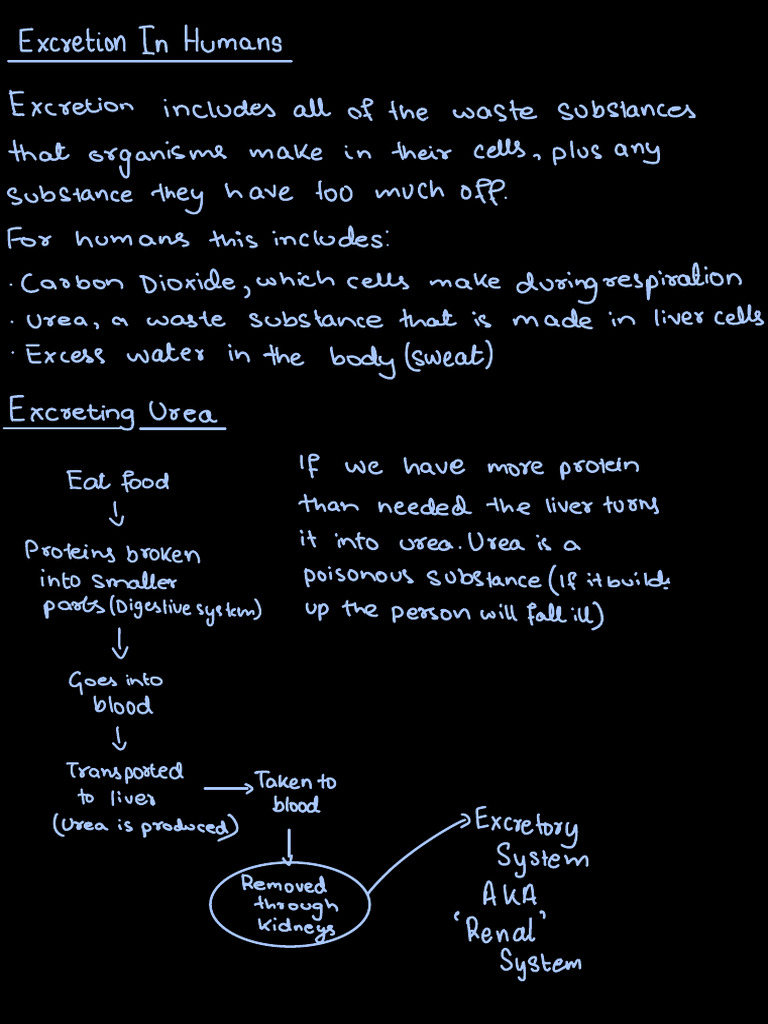 Excretion In Humans
Excretion includes all of the waste substances
that organisms make in their cells, plus any
substance they have too much off.
For humans this includes:
· Carbon Dioxide, which cells make during respiration
· Urea, a waste substance that is made in liver cells
· Excess water in the body (sweat)
Excreting Urea
Eat food
↓
Proteins broken
into smaller
parts (Digestive system)
↓
Goes into
blood
↓
Transported
to liver
(Urea is produced)
→
Taken to
blood
↓
Removed
through
kidneys
If we have more protein
than needed the liver turns
it into urea. Urea is a
poisonous substance (If it builds
up the person will fall ill)
Excretory
System
AKA
'Renal'
System